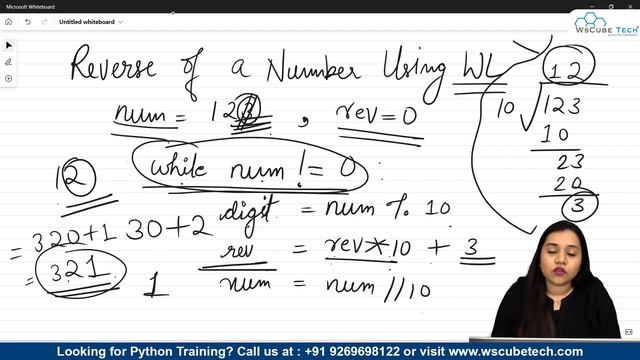 Microsoft Whiteboard
Untitled whiteboard
WsCube Tech
Reverse of a Number Using WL
num = 123 , rev = 0
while num != 0 :
digit = num % 10
rev = rev * 10 + 3
num = num // 10
12
30 + 2
= 320 + 1
= 321
1
12
10
123
10
23
20
3
Looking for Python Training? Call us at : +91 9269698122 or visit www.wscubetech.com